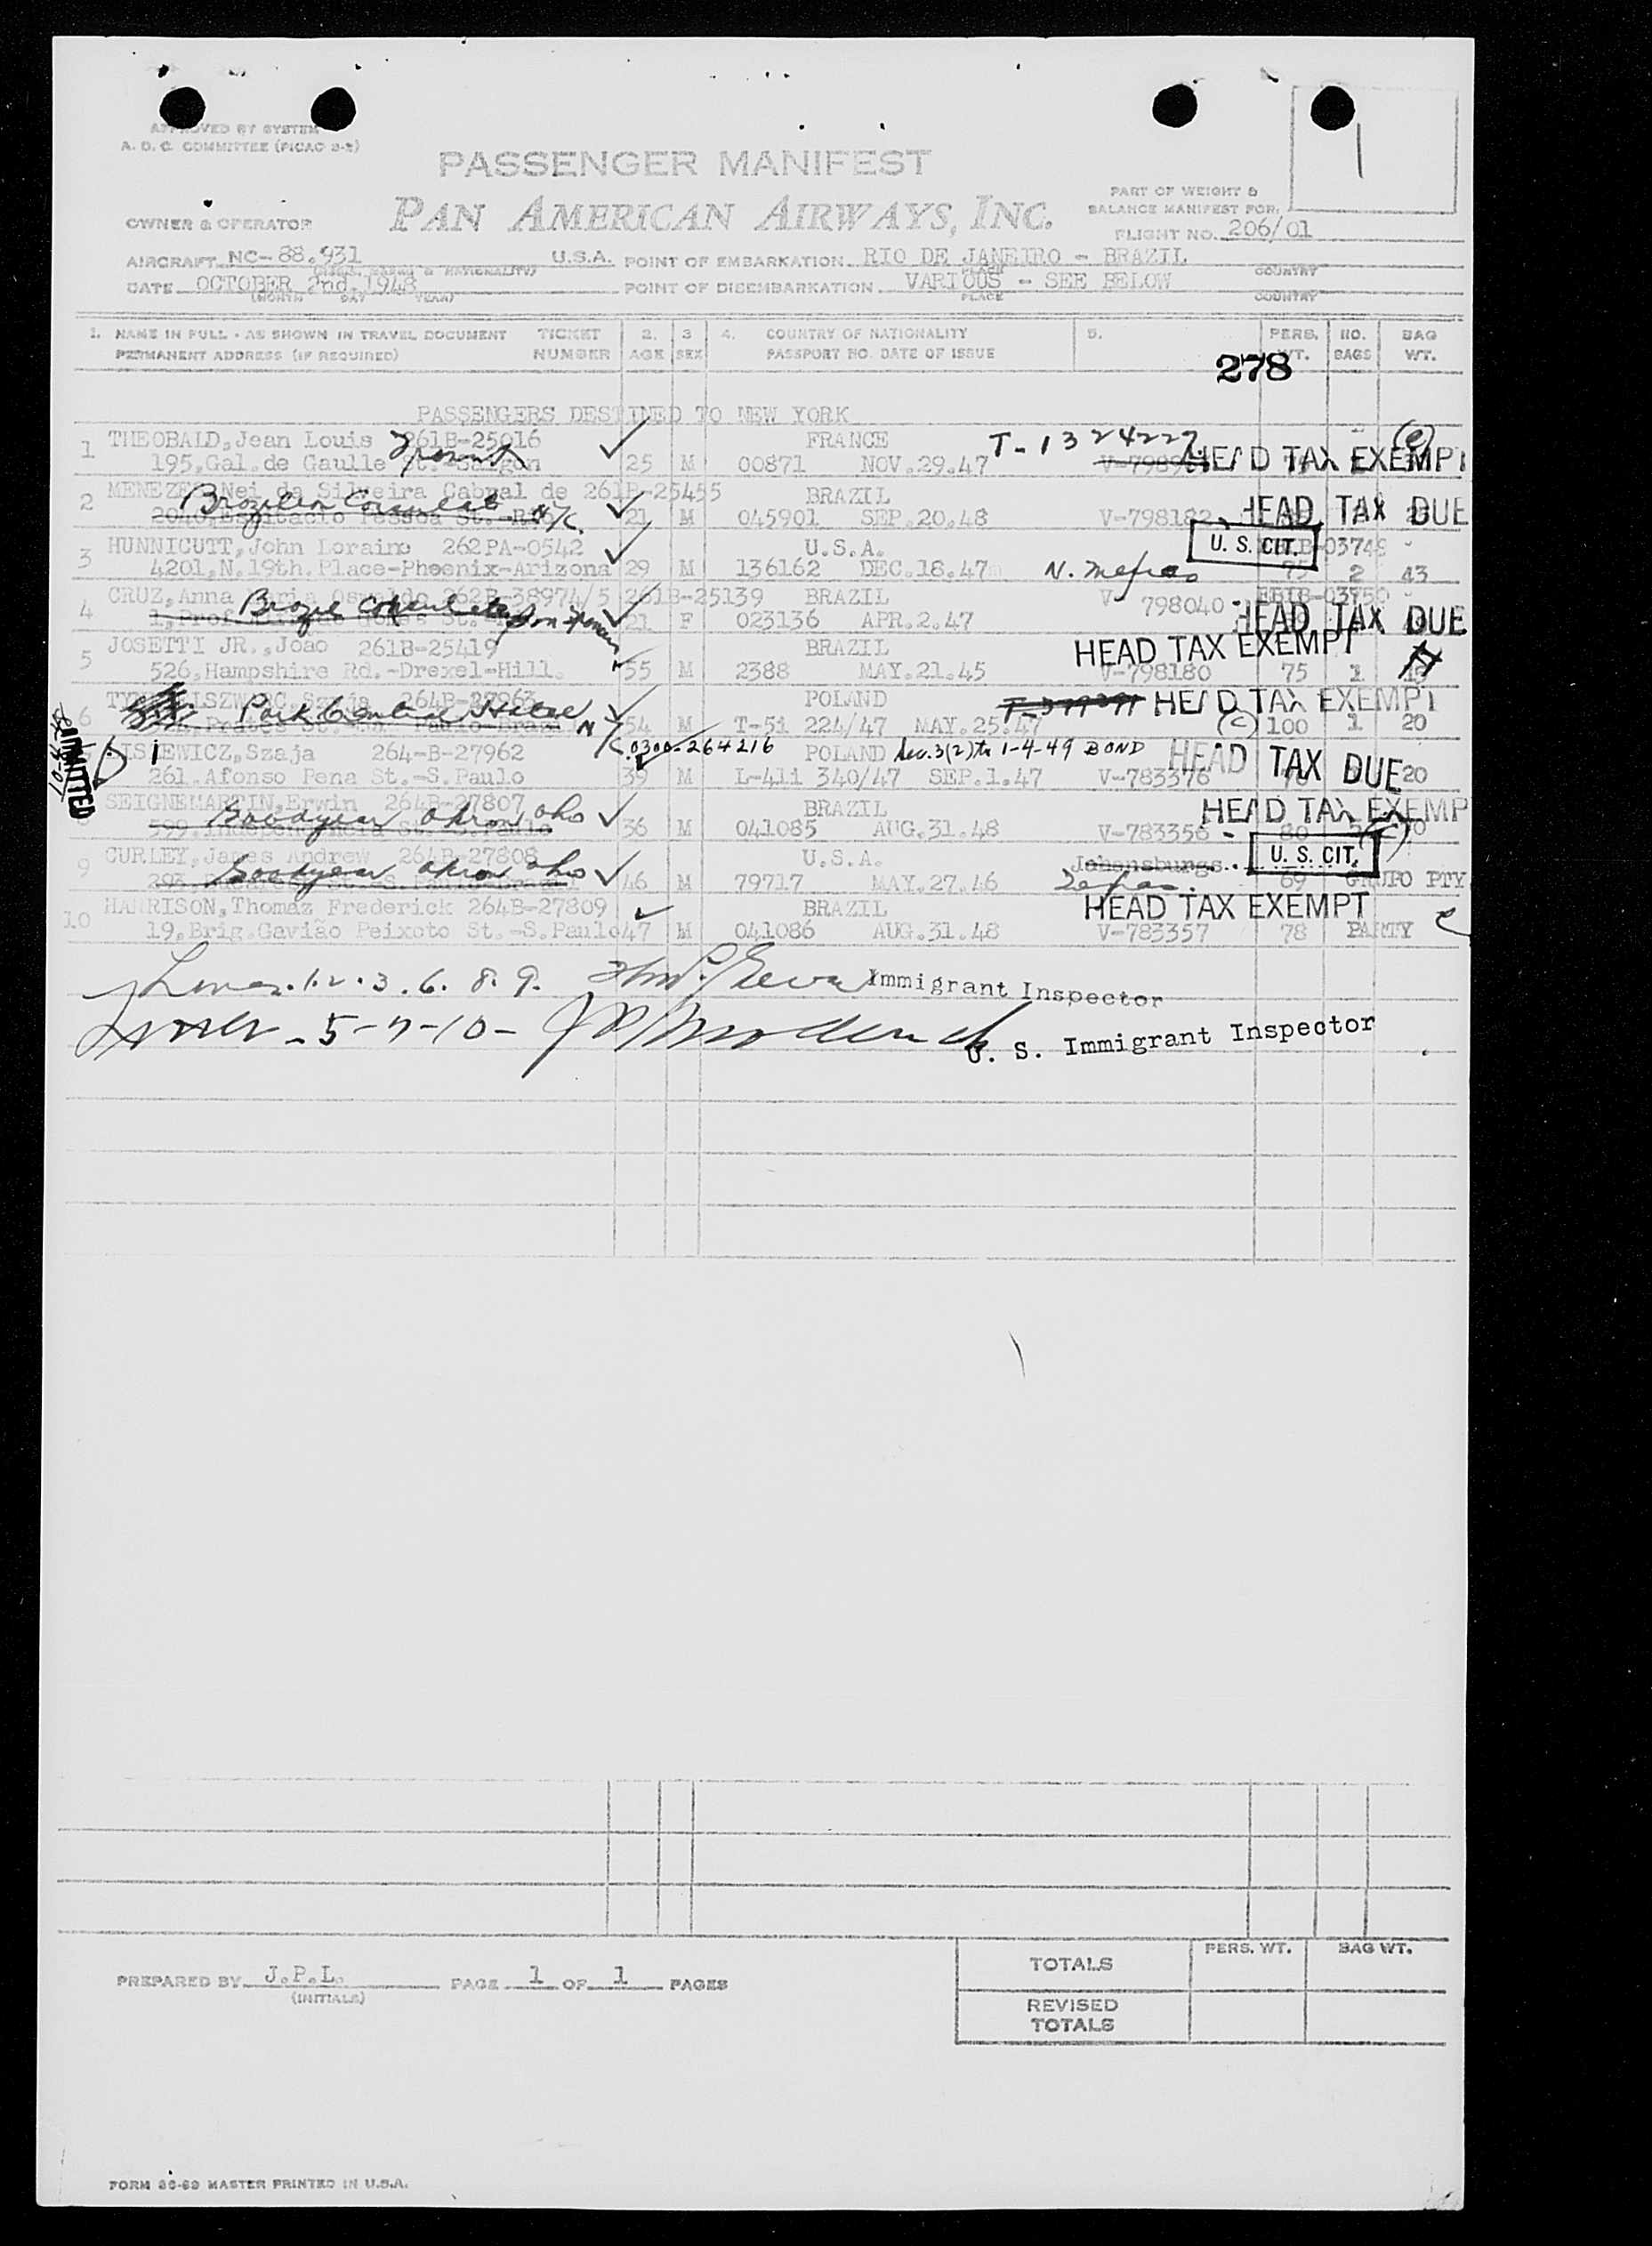 APPROVED BY SYSTEM
A. D. C. COMMITTEE (PICAO 2-2)
PASSENGER MANIFEST
PAN AMERICAN AIRWAYS, INC.
1
PART OF WEIGHT &
BALANCE MANIFEST FOR:
OWNER & OPERATOR
FLIGHT NO. 206/01
AIRCRAFT NC-88.931 U.S.A. POINT OF EMBARKATION RIO DE JANEIRO - BRAZIL
PLACE COUNTRY
DATE OCTOBER 2nd. 1948 POINT OF DISEMBARKATION VARIOUS - SEE BELOW
(MONTH DAY YEAR) PLACE COUNTRY
1. NAME IN FULL - AS SHOWN IN TRAVEL DOCUMENT TICKET 2. 3 4. COUNTRY OF NATIONALITY 5. PERS. NO. BAG
PERMANENT ADDRESS (IF REQUIRED) NUMBER AGE SEX PASSPORT NO. DATE OF ISSUE WT. BAGS WT.
278
PASSENGERS DESTINED TO NEW YORK
1 THEOBALD, Jean Louis 261B-25016 FRANCE T-1324227 HEAD TAX EXEMPT
195, Gal. de Gaulle St. Saigon 25 M 00871 NOV.29.47
2 MENEZES, Nei da Silveira Cabral de 261B-25455 BRAZIL HEAD TAX DUE
Brazilian Consulate N/C. 21 M 045901 SEP.20.48 V-798182
3 HUNNICUTT, John Loraine 262PA-0542 U.S.A. U. S. CIT.
4201, N.19th. Place-Phoenix-Arizona 29 M 136162 DEC.18.47 75 2 43
4 CRUZ, Anna Maria Oswaldo 262B-38974/5 261B-25139 BRAZIL EBIB-03750
21 F 023136 APR.2.47 V- 798040 - HEAD TAX DUE
5 JOSETTI JR., Joao 261B-25419 BRAZIL HEAD TAX EXEMPT
526, Hampshire Rd.-Drexel-Hill. 55 M 2388 MAY.21.45 V-798180 75 1
264B-27963 POLAND HEAD TAX EXEMPT
6 Park Central Hotel N/C 54 M T-51 224/47 MAY.25.47 (C) 100 1 20
ADMITTED
Szaja 264-B-27962 0300-264216 POLAND Sec.3(2) to 1-4-49 BOND HEAD TAX DUE
261, Afonso Pena St.-S.Paulo 39 M L-411 340/47 SEP.1.47 V-783376 20
SEIGNEMARTIN, Erwin 264B-27807 BRAZIL HEAD TAX EXEMP
Goodyear Akron Oho 36 M 041085 AUG.31.48 V-783356 - 80
9 CURLEY, James Andrew 264B-27808 U.S.A. Johansburgs.. U. S. CIT.
Goodyear Akron Oho 46 M 79717 MAY.27.46 69 GRUPO PTY
10 HARRISON, Thomaz Frederick 264B-27809 BRAZIL HEAD TAX EXEMPT
19, Brig. Gavião Peixoto St.-S.Paulo 47 M 041086 AUG.31.48 V-783357 78 PARTY
Lines. 1. 2. 3. 6. 8. 9. Immigrant Inspector
Lines - 5-7-10- U. S. Immigrant Inspector
PERS. WT. BAG WT.
TOTALS
PREPARED BY J.P.L. PAGE 1 OF 1 PAGES
(INITIALS)
REVISED
TOTALS
FORM 36-69 MASTER PRINTED IN U.S.A.